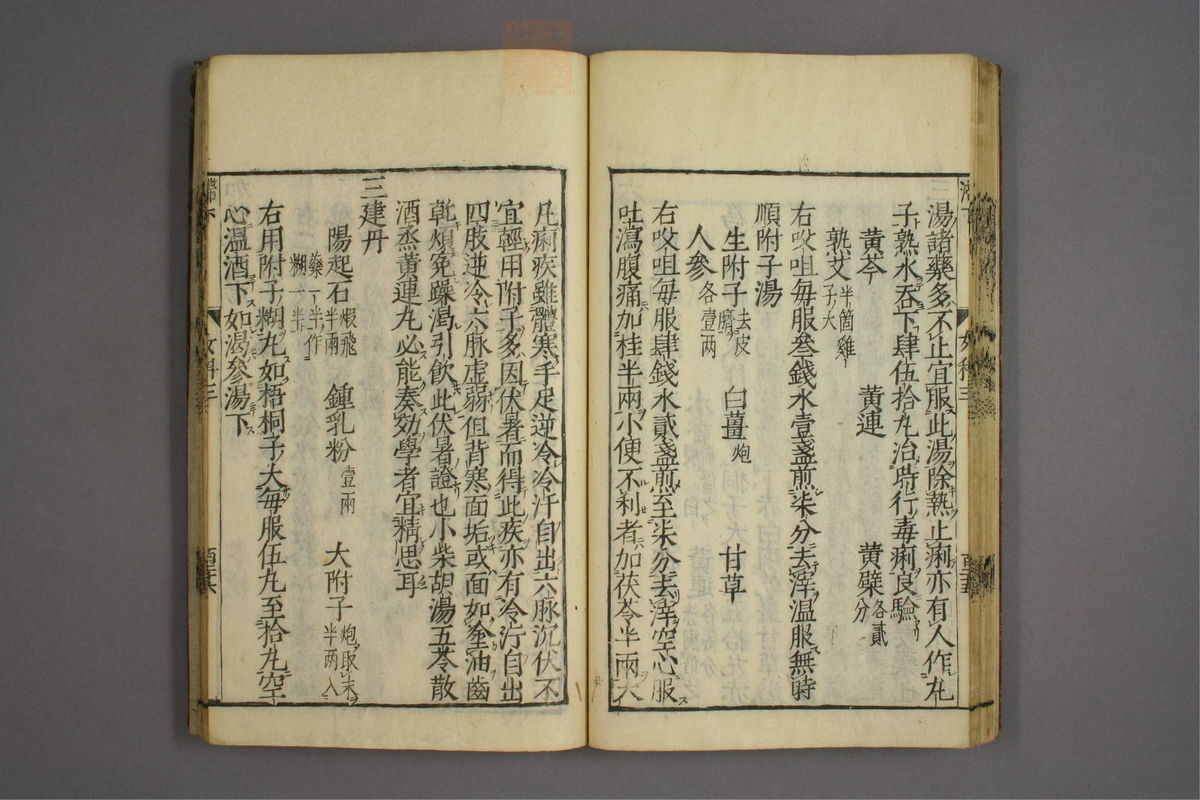 湯諸藥多不止宜服此湯除熱止痢亦有人作丸
子熟水吞下肆伍拾丸治時行毒痢良驗
黄芩 黄連 黄蘗各貳分
熟艾半箇雞子大
右㕮咀每服叄錢水壹盞煎柒分去滓温服無時
順附子湯
生附子去皮臍 白薑炮 甘草
人參各壹兩
右㕮咀每服肆錢水貳盞煎至柒分去滓空心服
吐瀉腹痛加桂半兩小便不利者加茯苓半兩大
凡痢疾雖體寒手足逆冷冷汗自出六脉沉伏不
宜輕用附子多因伏暑而得此疾亦有冷汗自出
四肢逆冷六脉虚弱但背寒面垢或面如塗油齒
乾煩寃躁渴引飲此伏暑證也小柴胡湯五苓散
酒烝黄連丸必能奏効學者宜精思耳
三建丹
陽起石煆飛半兩 鍾乳粉壹兩 大附子炮取末半兩入
藥一半作糊一半
右用附子糊丸如梧桐子大每服伍丸至拾丸空
心温酒下如渴參湯下
女科三